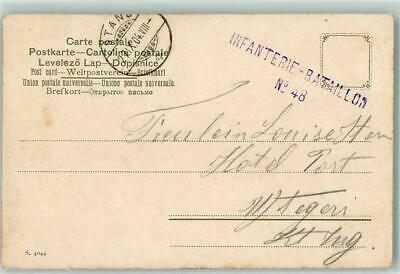 Carte postale
Postkarte — Cartolina postale
Levelező Lap — Dopisnice
Post card — Weltpostverein
Union postale universelle. — Unione postale universale.
Brefkort — Открытое письмо
INFANTERIE-BATAILLON
No 48
Fräulein Louise
Hôtel Post
Ktt Zug.
S. 4044